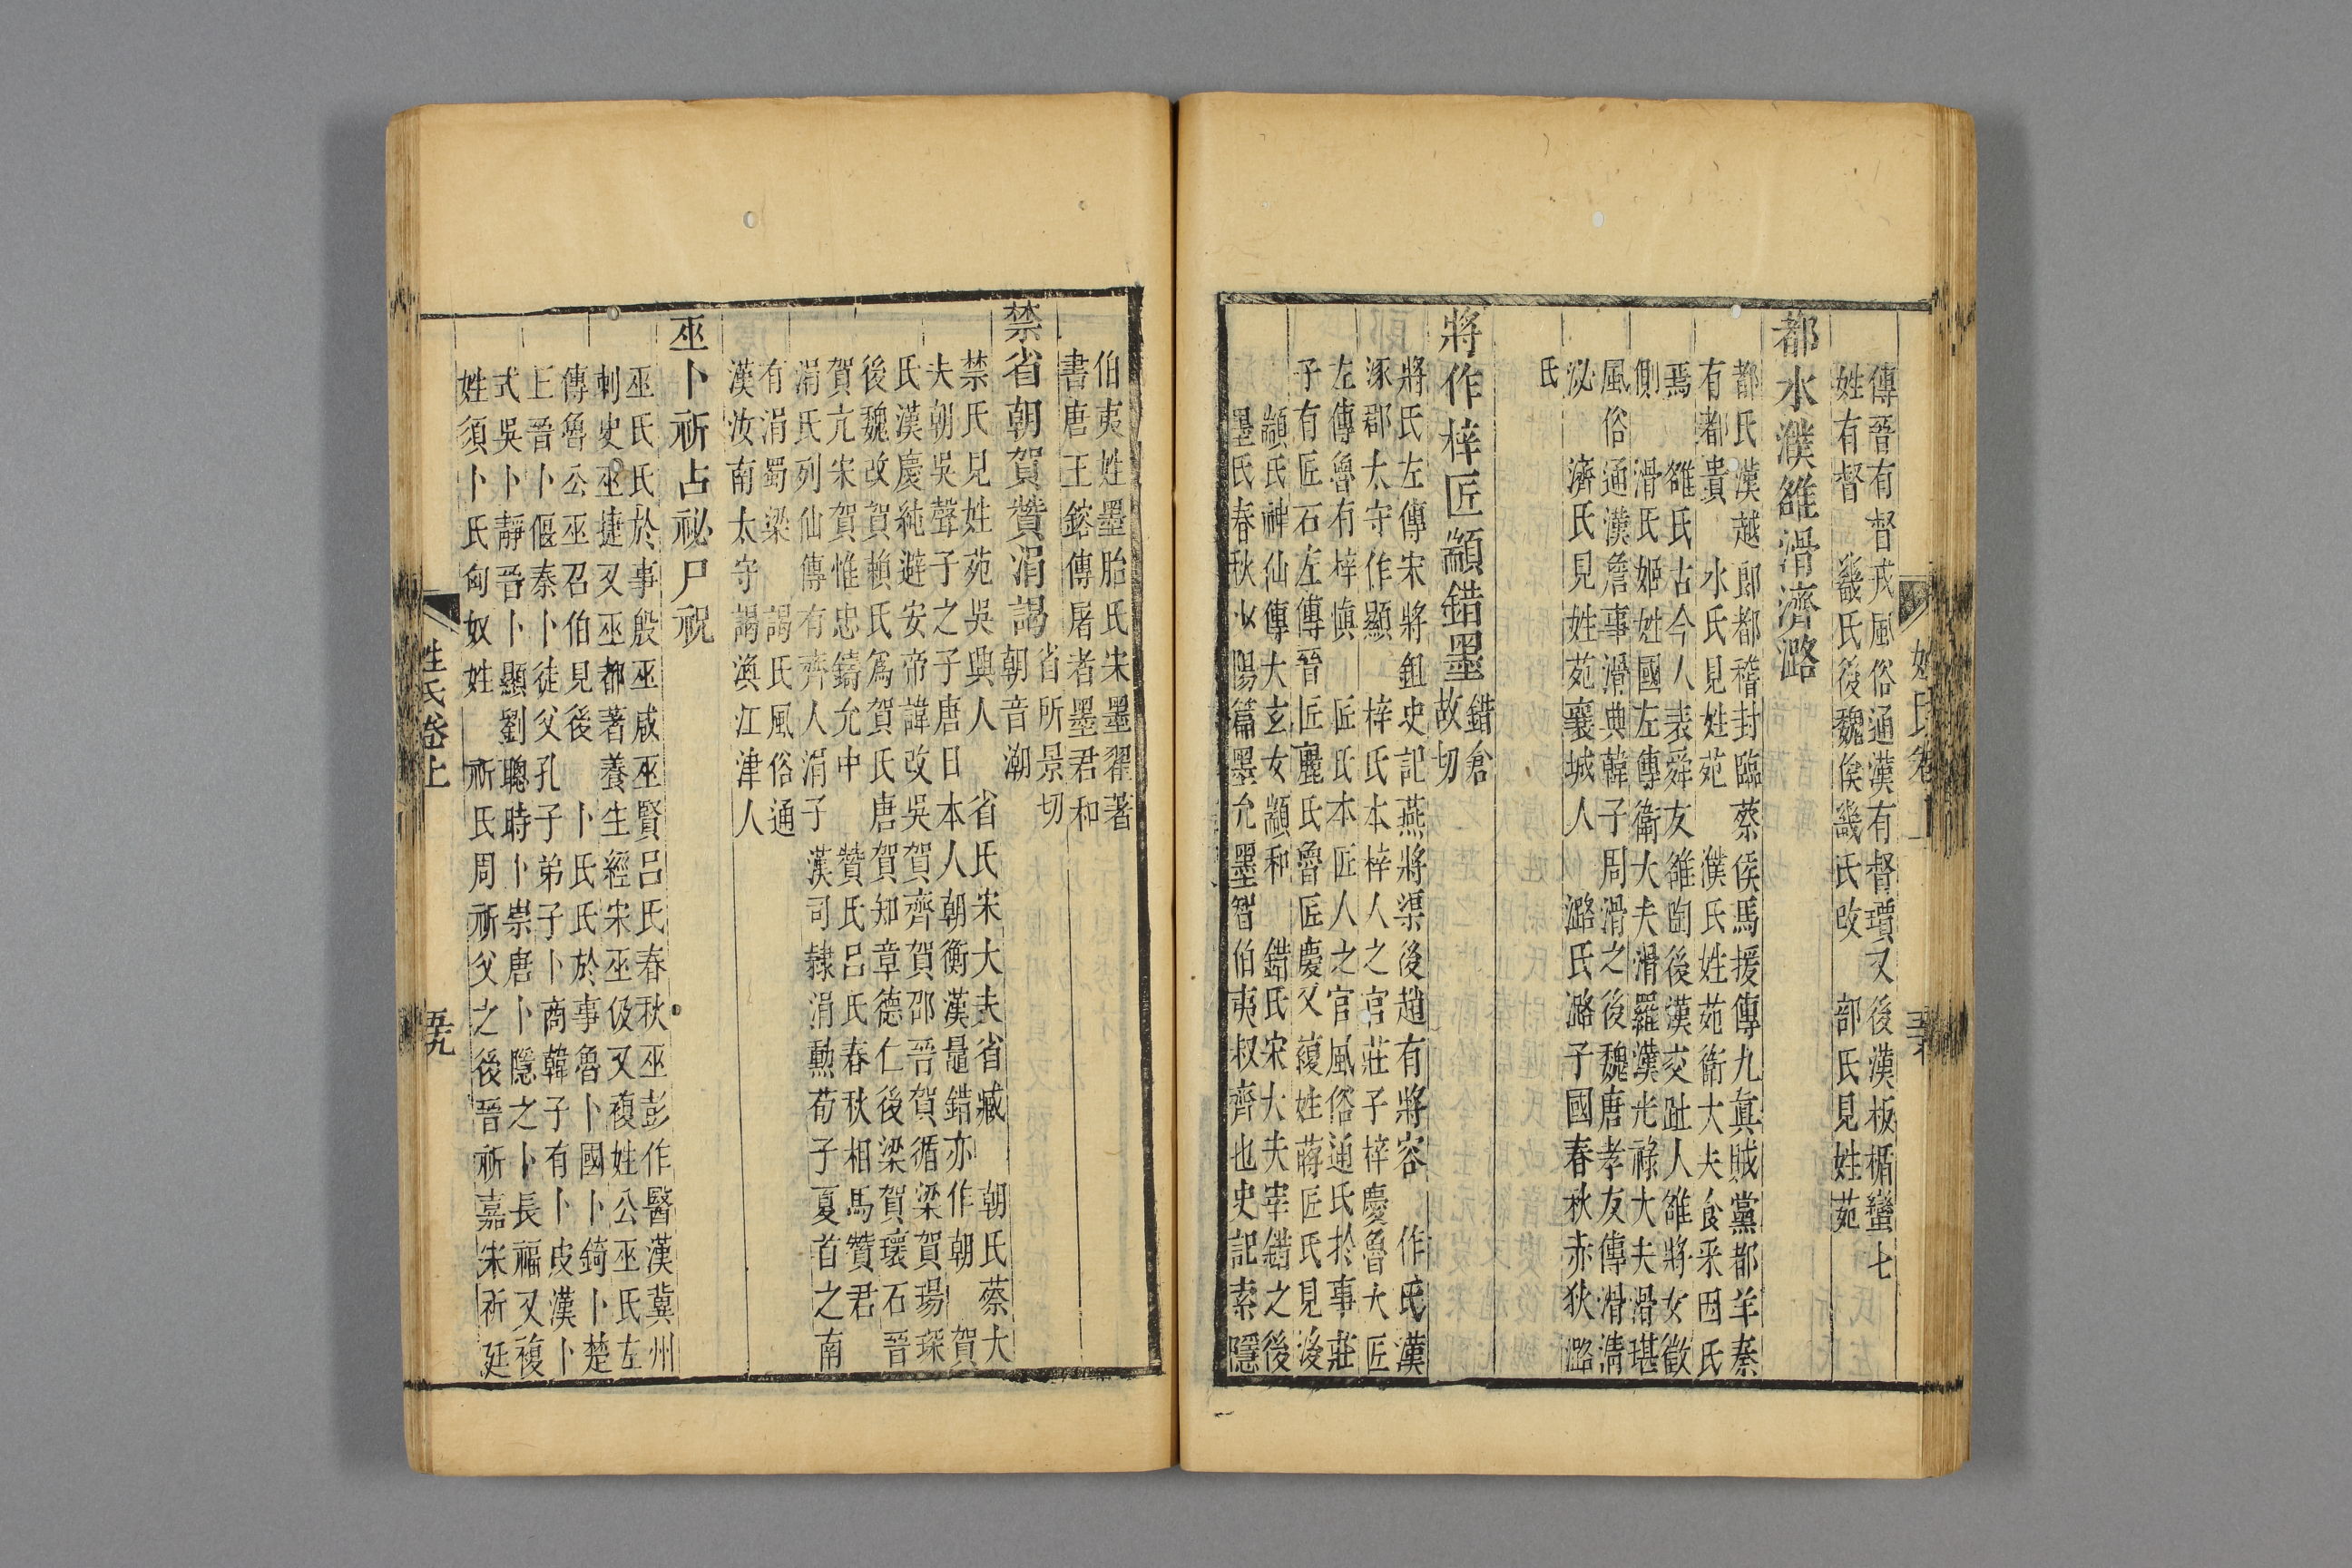 傳晉有督戎風俗通漢有督瓚又後漢板楯蠻七
姓有督　羲氏後魏俟羲氏改　部氏見姓苑
都水濮雒滑濟潞
都氏漢越郎都稽封臨蔡侯馬援傳九真賊黨都羊秦
有都貴　水氏見姓苑　濮氏姓苑衛大夫食采因氏
焉　雒氏古今人表舜友雒陶後漢交趾人雒將女徵
側　滑氏姬姓國左傳衛大夫滑羅漢光祿大夫滑堪
風俗通漢詹事滑典韓子周滑之後魏唐孝友傳滑清
泌　濟氏見姓苑襄城人　潞氏潞子國春秋赤狄潞
氏
將作梓匠顓錯墨錯倉故切
將氏左傳宋將鉏史記燕將渠後趙有將容　作氏漢
涿郡太守作顯　梓氏本梓人之官莊子梓慶魯大匠
左傳魯有梓愼　匠氏本匠人之官風俗通氏於事莊
子有匠石左傳晉匠麗氏魯匠慶又複姓蔣匠氏見後
顓氏神仙傳大玄女顓和　錯氏宋大夫宰錯之後
墨氏春秋少陽篇墨允墨智伯夷叔齊也史記索隱
姓氏卷上
伯夷姓墨胎氏宋墨翟著
書唐王鎔傳屠者墨君和
禁省朝賀贊涓謁省所景切朝音潮
禁氏見姓苑吳興人　省氏宋大夫省臧　朝氏蔡大
夫朝吳聲子之子唐日本人朝衡漢鼂錯亦作朝　賀
氏漢慶純避安帝諱改吳賀齊賀邵晉賀循梁賀瑒琛
後魏改賀賴氏爲賀氏唐賀知章德仁後梁賀瓌石晉
賀亢宋賀惟忠鑄允中　贊氏呂氏春秋相馬贊君
涓氏列仙傳有齊人涓子漢司隸涓勲荀子夏首之南
有涓蜀梁　謁氏風俗通
漢汝南太守謁渙江津人
巫卜祈占祕尸祝
巫氏氏於事殷巫咸巫賢呂氏春秋巫彭作醫漢冀州
刺史巫捷又巫都著養生經宋巫伋又複姓公巫氏左
傳魯公巫召伯見後　卜氏氏於事魯卜國卜錡卜楚
丘晉卜偃秦卜徒父孔子弟子卜商韓子有卜皮漢卜
式吳卜靜晉卜顯劉聰時卜崇唐卜隱之卜長福又複
姓須卜氏匈奴姓　祈氏周祈父之後晉祈嘉宋祈廷
姓氏卷上
五十九